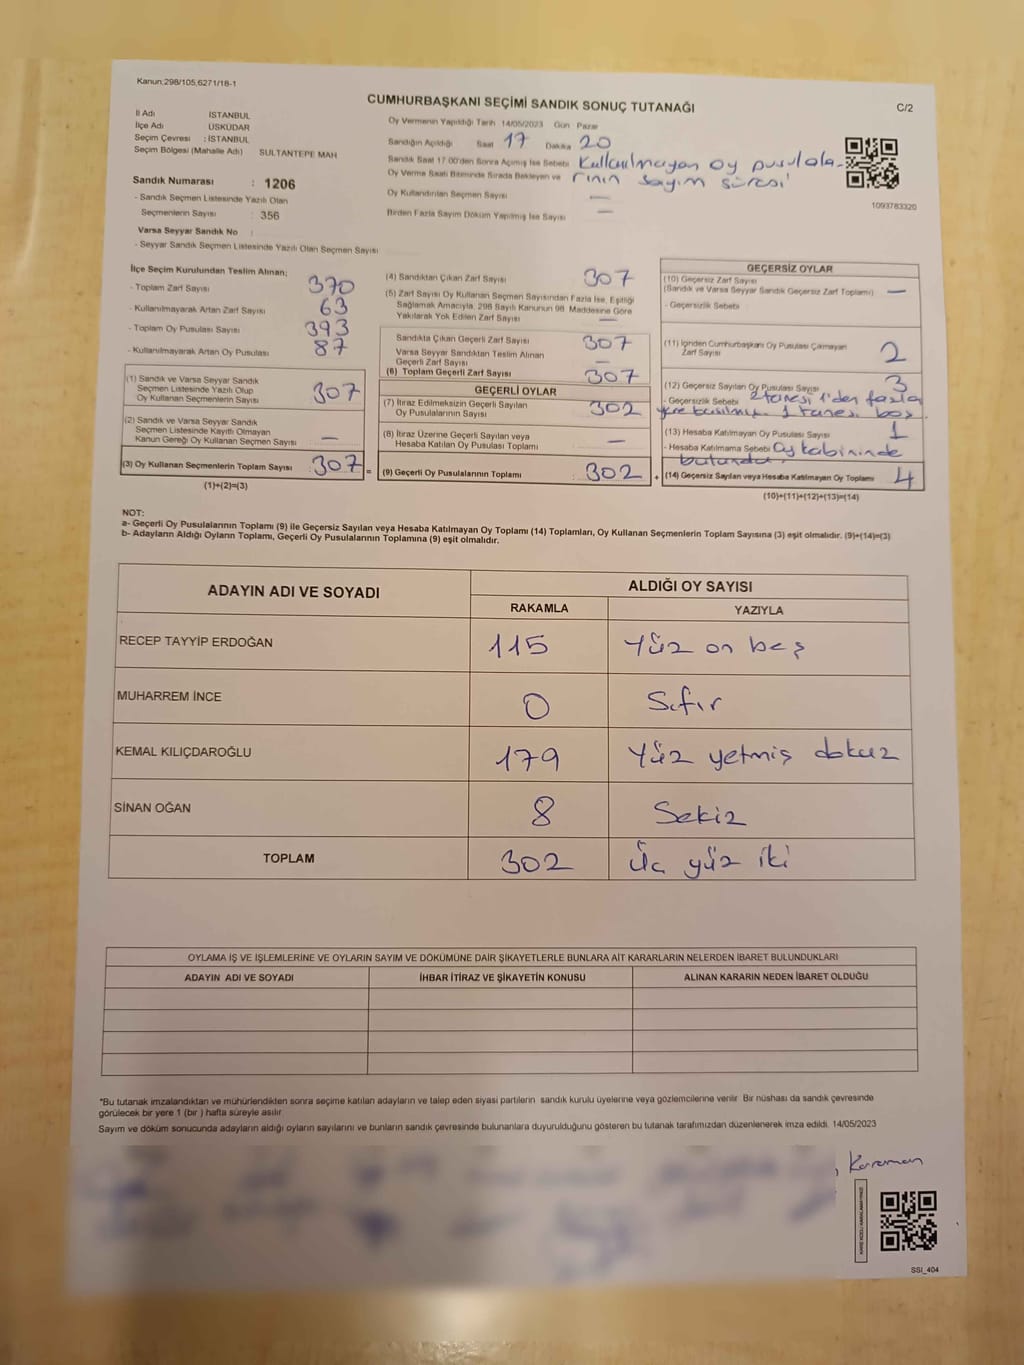 Kanun,298/105,6271/18-1
CUMHURBAŞKANI SEÇİMİ SANDIK SONUÇ TUTANAĞI
C/2
İl Adı İSTANBUL
İlçe Adı ÜSKÜDAR
Seçim Çevresi : İSTANBUL
Seçim Bölgesi (Mahalle Adı) SULTANTEPE MAH
Oy Vermenin Yapıldığı Tarih 14/05/2023 Gün Pazar
Sandığın Açıldığı Saat 17 Dakika 20
Sandık Saat 17.00'den Sonra Açılmış İse Sebebi Kullanılmayan oy pusulala-
Oy Verme Saati Bitiminde Sırada Bekleyen ve rının sayım süresi
Oy Kullandırılan Seçmen Sayısı —
Birden Fazla Sayım Döküm Yapılmış İse Sayısı —
1093783320
Sandık Numarası : 1206
- Sandık Seçmen Listesinde Yazılı Olan
Seçmenlerin Sayısı : 356
Varsa Seyyar Sandık No :
- Seyyar Sandık Seçmen Listesinde Yazılı Olan Seçmen Sayısı
İlçe Seçim Kurulundan Teslim Alınan;
- Toplam Zarf Sayısı 370
- Kullanılmayarak Artan Zarf Sayısı 63
- Toplam Oy Pusulası Sayısı 393
- Kullanılmayarak Artan Oy Pusulası 87
(1) Sandık ve Varsa Seyyar Sandık
Seçmen Listesinde Yazılı Olup
Oy Kullanan Seçmenlerin Sayısı 307
(2) Sandık ve Varsa Seyyar Sandık
Seçmen Listesinde Kayıtlı Olmayan
Kanun Gereği Oy Kullanan Seçmen Sayısı —
(3) Oy Kullanan Seçmenlerin Toplam Sayısı : 307 =
(1)+(2)=(3)
(4) Sandıktan Çıkan Zarf Sayısı 307
(5) Zarf Sayısı Oy Kullanan Seçmen Sayısından Fazla İse, Eşitliği
Sağlamak Amacıyla, 298 Sayılı Kanunun 98. Maddesine Göre
Yakılarak Yok Edilen Zarf Sayısı —
Sandıkta Çıkan Geçerli Zarf Sayısı 307
Varsa Seyyar Sandıktan Teslim Alınan
Geçerli Zarf Sayısı —
(6) Toplam Geçerli Zarf Sayısı 307
GEÇERLİ OYLAR
(7) İtiraz Edilmeksizin Geçerli Sayılan
Oy Pusulalarının Sayısı 302
(8) İtiraz Üzerine Geçerli Sayılan veya
Hesaba Katılan Oy Pusulası Toplamı —
(9) Geçerli Oy Pusulalarının Toplamı : 302 +
GEÇERSİZ OYLAR
(10) Geçersiz Zarf Sayısı
(Sandık ve Varsa Seyyar Sandık Geçersiz Zarf Toplamı) —
- Geçersizlik Sebebi
(11) İçinden Cumhurbaşkanı Oy Pusulası Çıkmayan
Zarf Sayısı 2
(12) Geçersiz Sayılan Oy Pusulası Sayısı 3
- Geçersizlik Sebebi 2 tanesi 1'den fazla
yere basılmış. 1 tanesi boş.
(13) Hesaba Katılmayan Oy Pusulası Sayısı 1
- Hesaba Katılmama Sebebi Oy kabininde
bulundu.
(14) Geçersiz Sayılan veya Hesaba Katılmayan Oy Toplamı 4
(10)+(11)+(12)+(13)=(14)
NOT:
a- Geçerli Oy Pusulalarının Toplamı (9) ile Geçersiz Sayılan veya Hesaba Katılmayan Oy Toplamı (14) Toplamları, Oy Kullanan Seçmenlerin Toplam Sayısına (3) eşit olmalıdır. (9)+(14)=(3)
b- Adayların Aldığı Oyların Toplamı, Geçerli Oy Pusulalarının Toplamına (9) eşit olmalıdır.
ADAYIN ADI VE SOYADI
ALDIĞI OY SAYISI
RAKAMLA YAZIYLA
RECEP TAYYİP ERDOĞAN 115 Yüz on beş
MUHARREM İNCE 0 Sıfır
KEMAL KILIÇDAROĞLU 179 Yüz yetmiş dokuz
SİNAN OĞAN 8 Sekiz
TOPLAM 302 Üç yüz iki
OYLAMA İŞ VE İŞLEMLERİNE VE OYLARIN SAYIM VE DÖKÜMÜNE DAİR ŞİKAYETLERLE BUNLARA AİT KARARLARIN NELERDEN İBARET BULUNDUKLARI
ADAYIN ADI VE SOYADI İHBAR İTİRAZ VE ŞİKAYETİN KONUSU ALINAN KARARIN NEDEN İBARET OLDUĞU
*Bu tutanak imzalandıktan ve mühürlendikten sonra seçime katılan adayların ve talep eden siyasi partilerin sandık kurulu üyelerine veya gözlemcilerine verilir. Bir nüshası da sandık çevresinde
görülecek bir yere 1 (bir ) hafta süreyle asılır
Sayım ve döküm sonucunda adayların aldığı oyların sayılarını ve bunların sandık çevresinde bulunanlara duyurulduğunu gösteren bu tutanak tarafımızdan düzenlenerek imza edildi. 14/05/2023
Karaman
KARE KODU KARALAMAYINIZ!
SSI_404